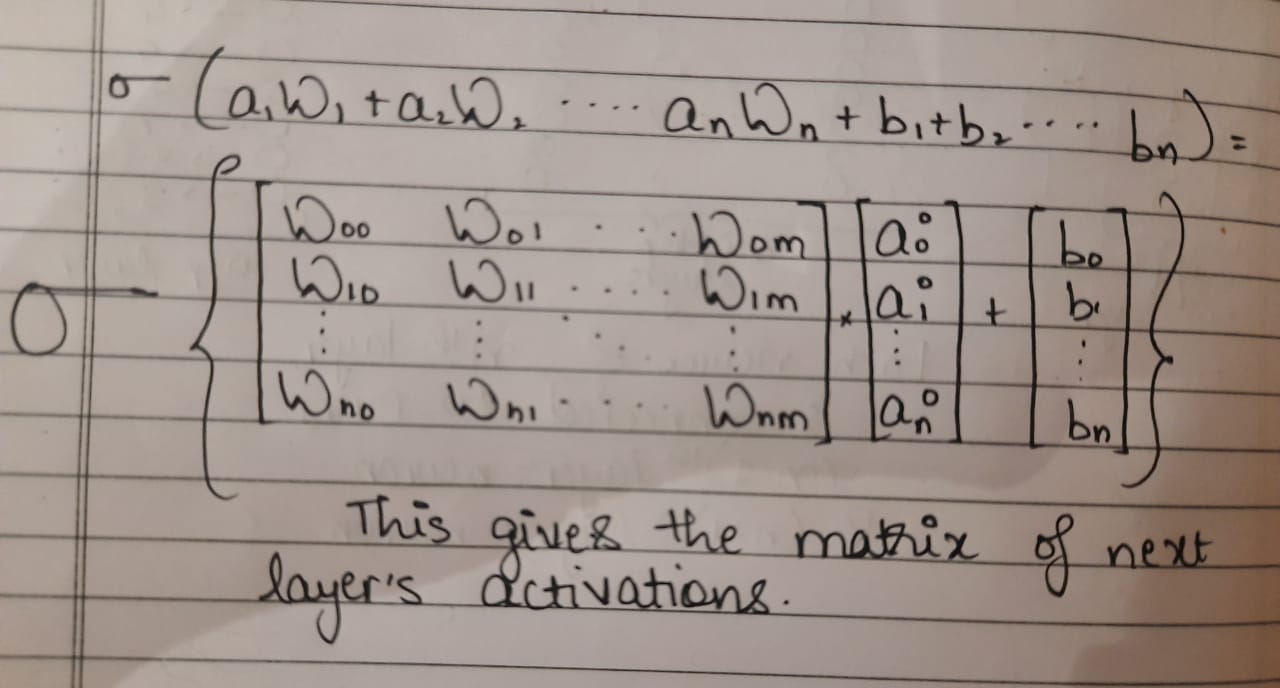 σ (a₁W₁ + a₂W₂ ..... aₙWₙ + b₁ + b₂ ..... bₙ) =
σ { [ W₀₀ W₀₁ ..... W₀ₘ ] × [ a₀⁰ ] + [ b₀ ] }
W₁₀ W₁₁ ..... W₁ₘ a₁⁰ b₁
⋮ ⋮ ⋱ ⋮ ⋮ ⋮
Wₙ₀ Wₙ₁ ..... Wₙₘ aₙ⁰ bₙ
This gives the matrix of next
layer's activations.